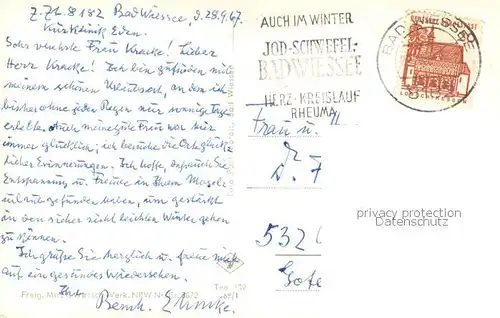 Z. Zt. 8182 Bad Wiessee, d. 28.9.67.
Kurklinik Eden.
Sehr verehrte Frau Kracke! Lieber
Herr Kracke! Ich bin zufrieden mit
meinem schönen Urlaubsort, an dem ich
bisher ohne jeden Regen nur sonnige Tage
erlebte. Auch meine gute Frau war hier
immer glücklich; ich besuche die Orte glückli
licher Erinnerungen. Ich hoffe, daß auch Sie
Entspannung u. Freude in Ihrem
urlaub gefunden haben, um gestärkt
in den sicher nicht leichten Winter gehen
zu können.
Ich grüße Sie herzlich u. freue mich
auf ein gesundes Wiedersehen.
Ihr
Bernh.
Freig. Min. Wirtsch. Verk. NRW Nr.
AUCH IM WINTER
JOD-SCHWEFEL-
BAD WIESSEE
HERZ·KREISLAUF
RHEUMA
BAD WIESSEE
DEUTSCHE BUNDESPOST
Frau u. H
Dr. F
532
privacy protection
Datenschutz